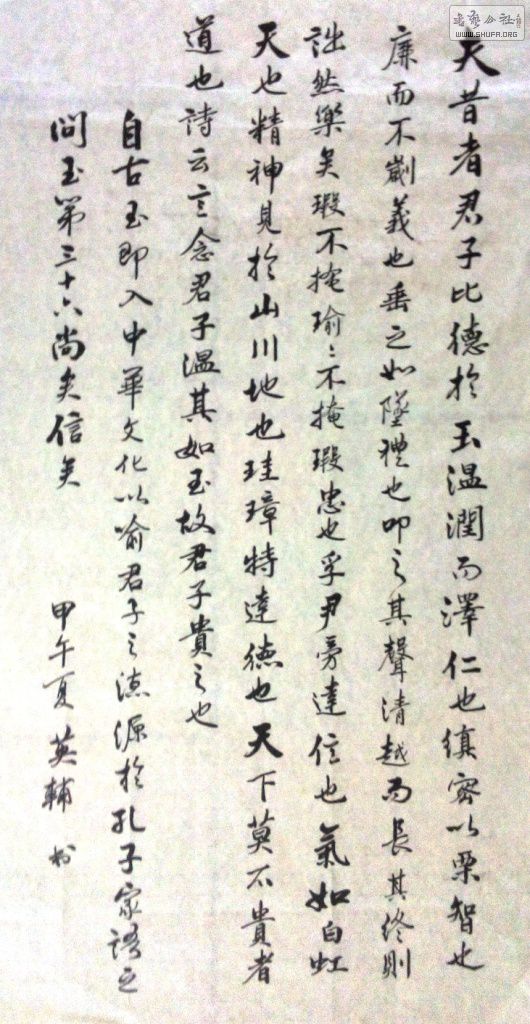 天昔者君子比德於玉温潤而澤仁也縝密以栗智也
廉而不劌義也垂之如墜禮也叩之其聲清越而長其终則
詘然樂矣瑕不掩瑜〻不掩瑕忠也孚尹旁達信也氣如白虹
天也精神見於山川地也珪璋特達德也天下莫不貴者
道也詩云言念君子温其如玉故君子貴之也
自古玉即入中華文化以喻君子之德源於孔子家語之
問玉第三十六尚矣信矣
甲午夏英輔书
书艺公社
WWW.SHUFA.ORG